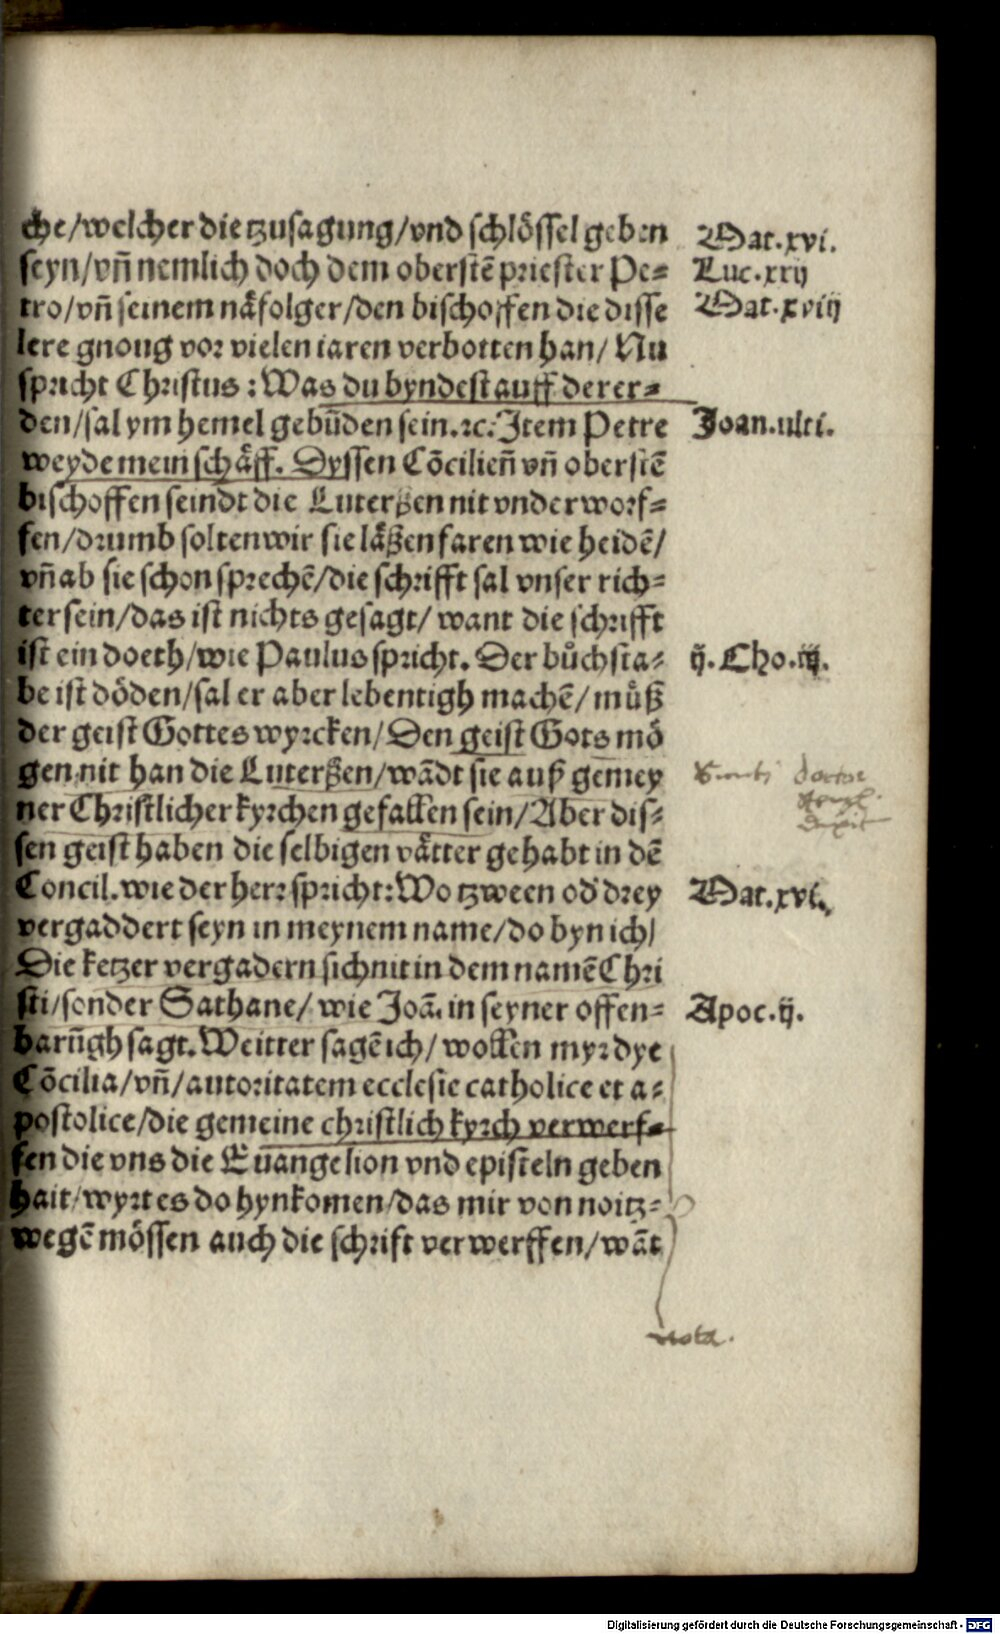 che/welcher die tzusagung/vnd schlössel geben
Mat.xvi.
seyn/vñ nemlich doch dem oberstẽ priester Pe=
Luc.xxij
tro/vñ seinem nåfolger/den bischoffen die disse
Mat.xviij
lere gnoug vor vielen iaren verbotten han/ Nu
spricht Christus : Was du byndest auff der er=
den/sal ym hemel gebũden sein.ꝛc. Item Petre
Joan.ulti.
weyde mein schåff. Dyssen Cõcilieñ vñ oberstẽ
bischoffen seindt die Luterßen nit vnderworf=
fen/drumb solten wir sie låßen faren wie heidẽ/
vñ ab sie schon sprechẽ/die schrifft sal vnser rich=
ter sein/das ist nichts gesagt/ want die schrifft
ist ein doeth/wie Paulus spricht. Der bůchsta=
ij. Cho.iij.
be ist döden/sal er aber lebentigh machẽ/ můß
der geist Gottes wyrcken/ Den geist Gots mö
gen nit han die Luterßen/wãdt sie auß gemey
ner Christlicher kyrchen gefallen sein/ Aber dis=
sen geist haben die selbigen våtter gehabt in dẽ
Concil. wie der herr spricht: Wo tzween od' drey
Mat.xvi.
vergaddert seyn in meynem name/do byn ich/
Die ketzer vergadern sich nit in dem namẽ Chri
sti/sonder Sathane/ wie Joã. in seyner offen=
Apoc.ij.
barũgh sagt. Weitter sagẽ ich/ wollen myr dye
Cõcilia/vñ/autoritatem ecclesie catholice et a=
postolice/die gemeine christlich kyrch verwerf=
fen die vns die Euangelion vnd episteln geben
hait/wyrt es do hynkomen/das mir von noitz=
wegẽ mössen auch die schrift verwerffen/wãt
nota.
Digitalisierung gefördert durch die Deutsche Forschungsgemeinschaft - DFG